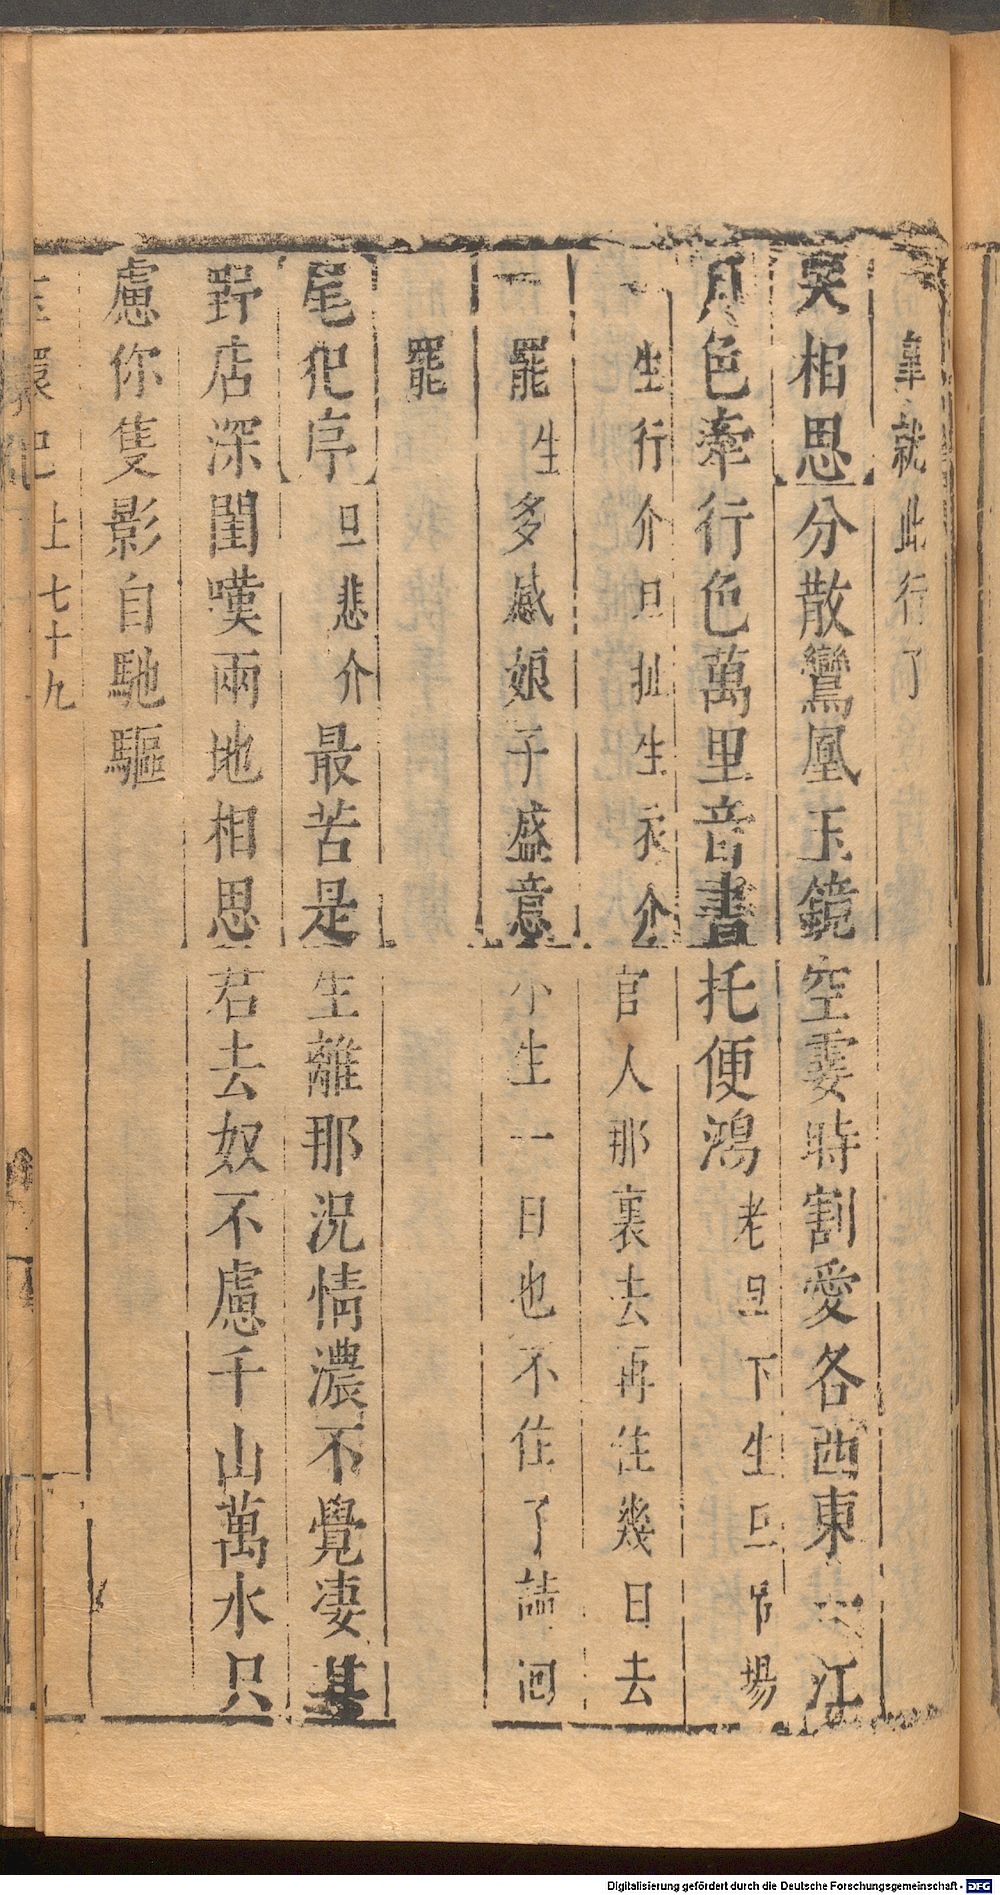 辜就此行了
哭相思分散鸞凰玉鏡空霎時割愛各西東一江
月色牽行色萬里音書托便鴻老旦下生旦吊場
生行介旦扯生衣介官人那裏去再住幾日去
罷生多感娘子盛意小生一日也不住了請回
罷
尾犯序旦悲介最苦是生離那況情濃不覺淒其
野店深閨嘆兩地相思君去奴不慮千山萬水只
慮你隻影自馳驅
玉環記上七十九
Digitalisierung gefördert durch die Deutsche Forschungsgemeinschaft - DFG